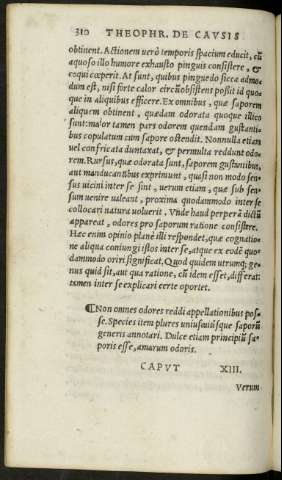 310 THEOPHR. DE CAVSIS
obtinent. Actionem verò temporis spacium educit, cũ
aquoso illo humore exhausto pinguis consistere, &
coqui cœperit. At sunt, quibus pinguedo sicca admo-
dum est, nisi forte calor circũobsistens possit id quo
que in aliquibus efficere. Ex omnibus, quæ saporem
aliquem obtinent, quædam odorata quoque illico
sunt: maior tamen pars odorem quendam gustanti-
bus copulatum cum sapore ostendit. Nonnulla etiam
vel confricata duntaxat, & permulta reddunt odo
rem. Rursus, quæ odorata sunt, saporem gustantibus,
aut manducantibus exprimunt, quasi non modo sen-
sus uicini inter se sint, uerum etiam, quæ sub sen-
sum uenire ualeant, proxima quodammodo inter se
collocari natura uoluerit. Vnde haud perperã dictũ
appareat, odores pro saporum ratione consistere.
Hæc enim opinio planè illi respondet, quæ cognatio-
ne aliqua coniungi istos inter se, atque ex eodẽ quo-
dammodo oriri significat. Quod quidem utrumq; ge-
nus quid sit, aut qua ratione, cũ idem esset, differat:
tamen inter se explicari certe oportet.
Non omnes odores reddi appellationibus pos-
se. Species item plures uniuscuiusque saporũ
generis annotari. Dulce etiam principiũ sa-
poris esse, amarum odoris.
CAPVT XIII.
Verum